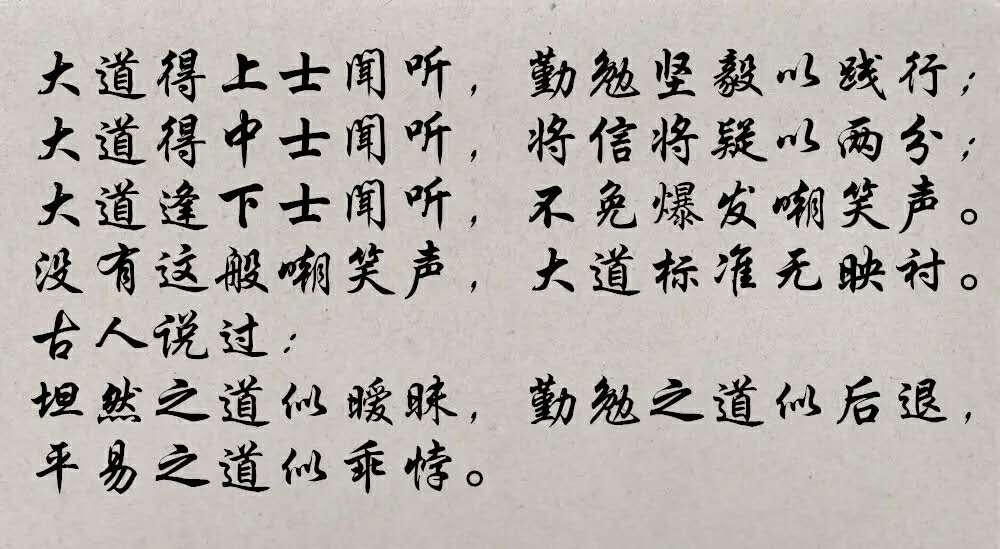 大道得上士闻听，勤勉坚毅以践行；
大道得中士闻听，将信将疑以两分；
大道逢下士闻听，不免爆发嘲笑声。
没有这般嘲笑声，大道标准无映衬。
古人说过：
坦然之道似暧昧，勤勉之道似后退，
平易之道似乖悖。